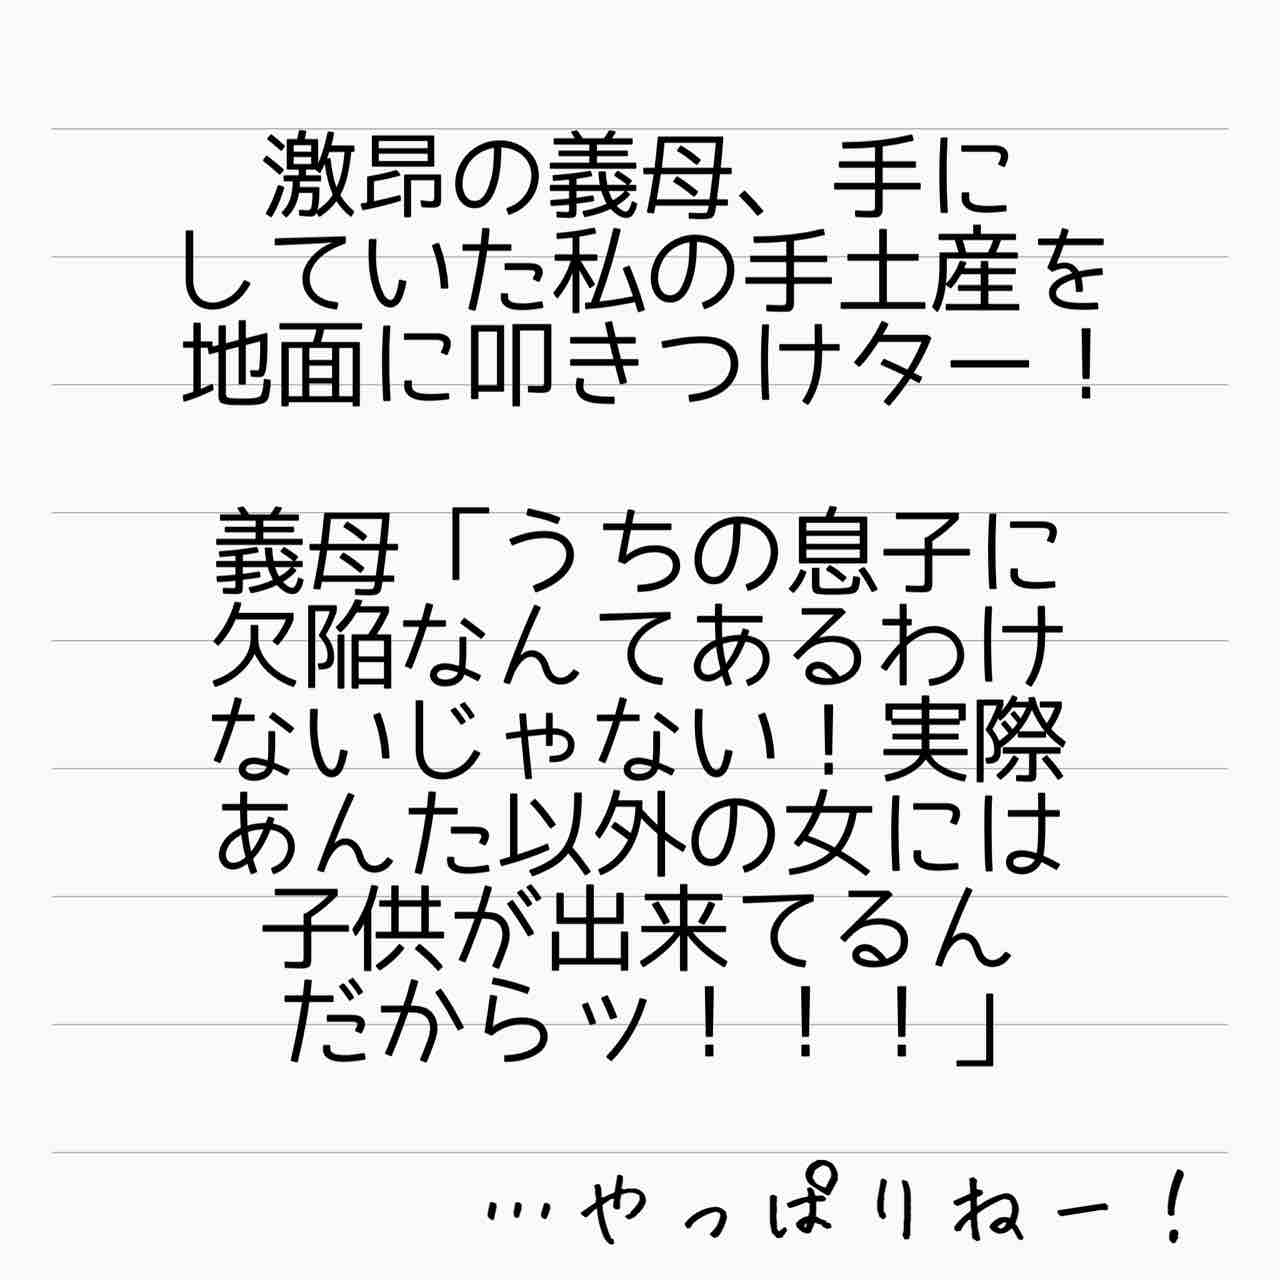 激昂の義母、手に
していた私の手土産を
地面に叩きつけター！
義母「うちの息子に
欠陥なんてあるわけ
ないじゃない！実際
あんた以外の女には
子供が出来てるん
だからッ！！！」
…やっぱりねー！